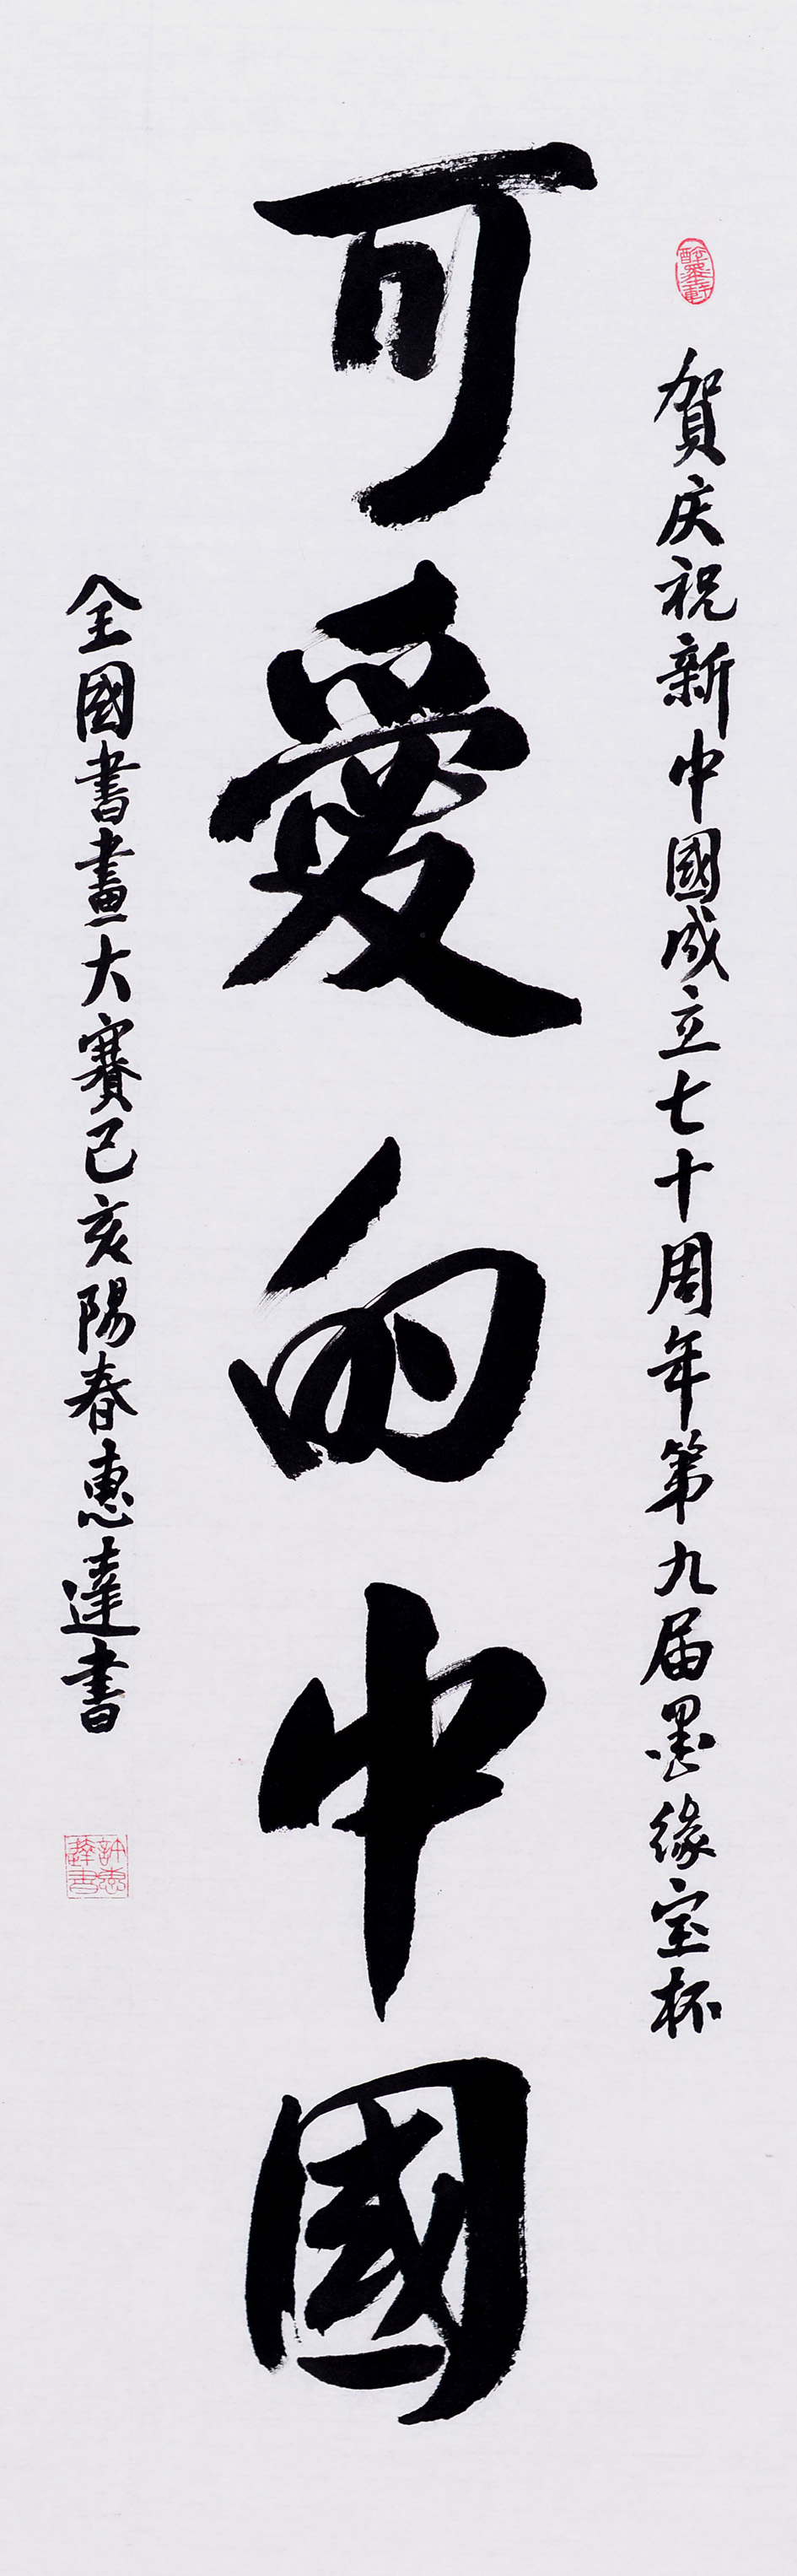 賀庆祝新中國成立七十周年第九届墨缘宝杯
可愛的中國
全國書畫大賽己亥陽春惠達書
許惠達書